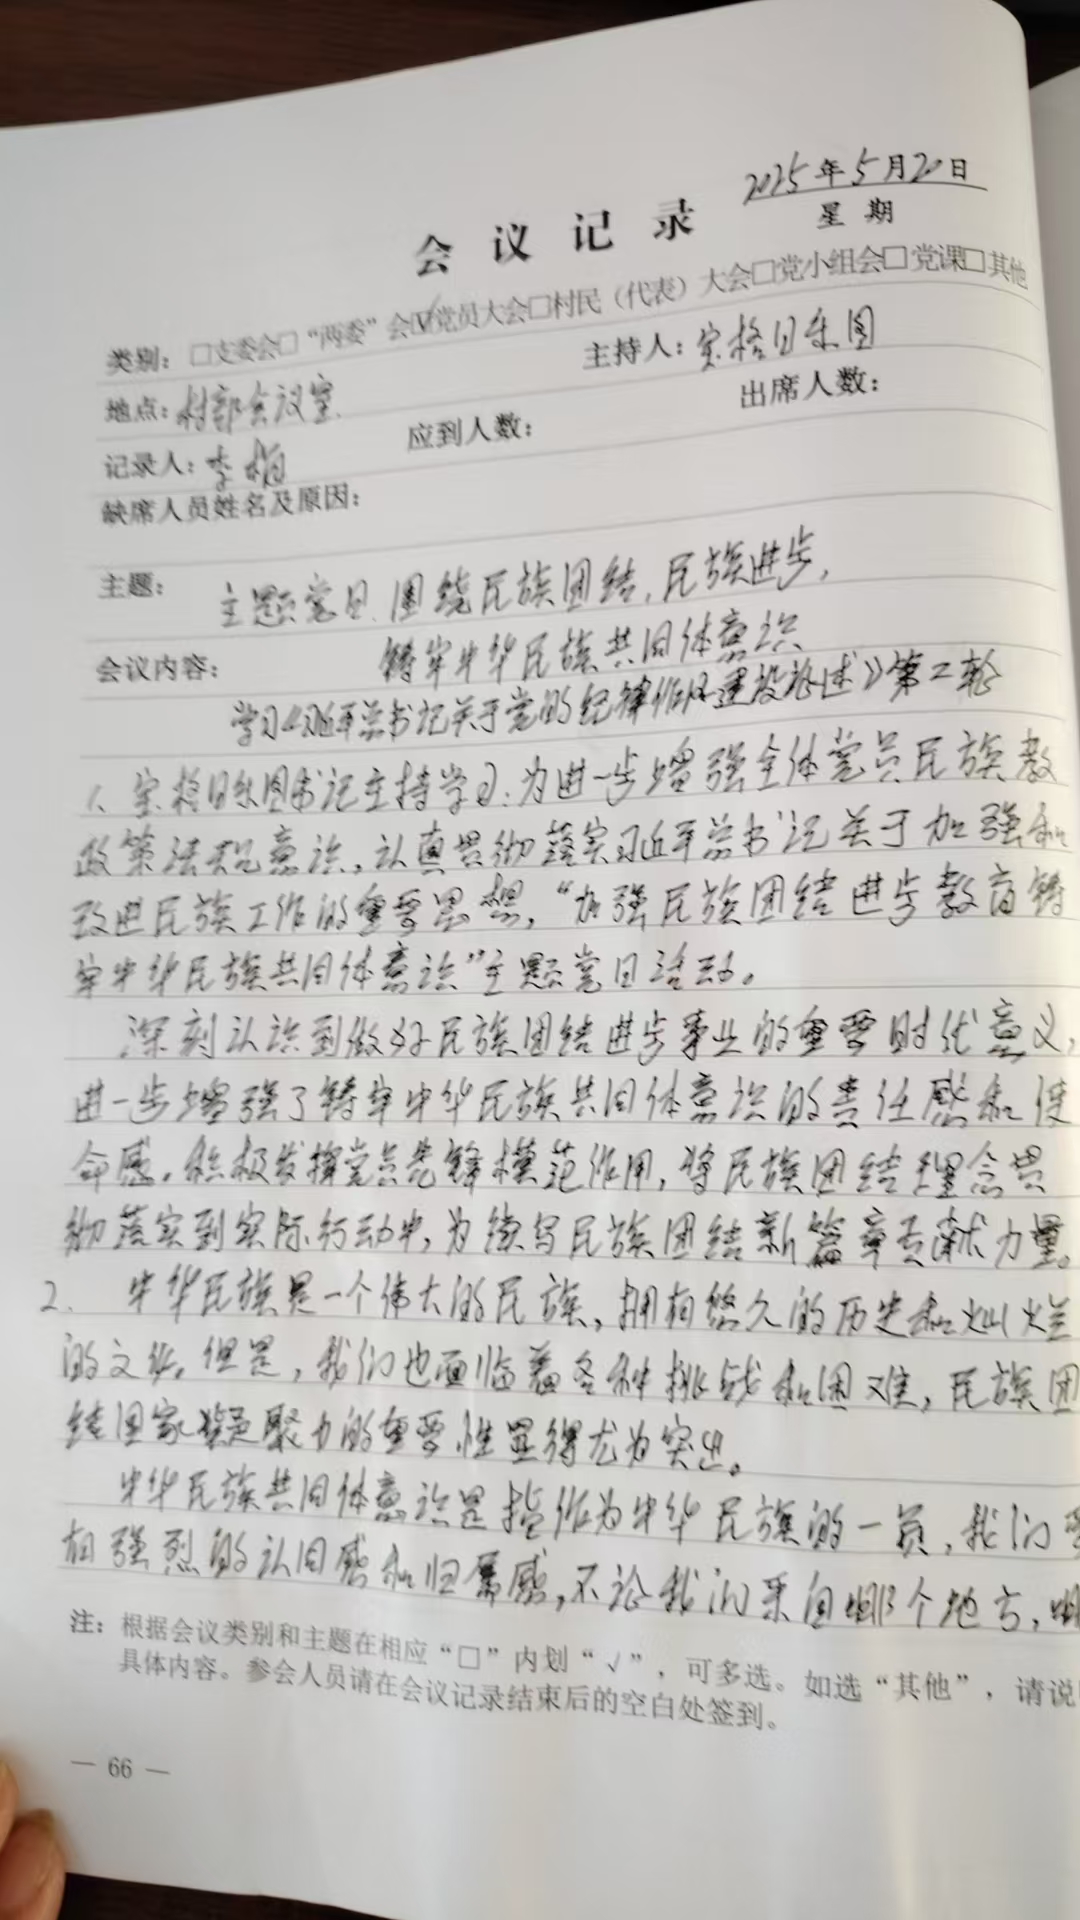 2025年5月20日
星期
会议记录
类别：□支委会□“两委”会☑党员大会□村民（代表）大会□党小组会□党课□其他
地点：村部会议室 主持人：宝格日乐图
记录人：李 应到人数： 出席人数：
缺席人员姓名及原因：
主题：主题党日.围绕民族团结,民族进步,
会议内容：铸牢中华民族共同体意识
学习《习近平总书记关于党的纪律作风建设论述》第二轮
1、宝格日乐图书记主持学习：为进一步增强全体党员民族教
政策法规意识,认真贯彻落实习近平总书记关于加强和
改进民族工作的重要思想,“加强民族团结进步教育铸
牢中华民族共同体意识”主题党日活动。
深刻认识到做好民族团结进步事业的重要时代意义,
进一步增强了铸牢中华民族共同体意识的责任感和使
命感。积极发挥党员先锋模范作用,将民族团结理念贯
彻落实到实际行动中,为续写民族团结新篇章贡献力量。
2. 中华民族是一个伟大的民族,拥有悠久的历史和灿烂
的文化。但是,我们也面临着各种挑战和困难,民族团
结国家凝聚力的重要性显得尤为突出。
中华民族共同体意识是指作为中华民族的一员,我们要
有强烈的认同感和归属感,不论我们来自哪个地方,哪
注：根据会议类别和主题在相应“□”内划“√”，可多选。如选“其他”，请说
具体内容。参会人员请在会议记录结束后的空白处签到。
— 66 —